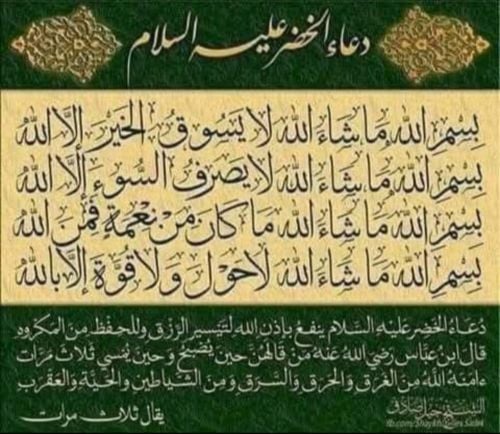 دعاء الخضر عليه السلام
بِسْمِ اللهِ مَا شَاءَ اللهُ لَا يَسُوقُ الْخَيْرَ إِلَّا اللهُ
بِسْمِ اللهِ مَا شَاءَ اللهُ لَا يَصْرِفُ السُّوءَ إِلَّا اللهُ
بِسْمِ اللهِ مَا شَاءَ اللهُ مَا كَانَ مِنْ نِعْمَةٍ فَمِنَ اللهِ
بِسْمِ اللهِ مَا شَاءَ اللهُ لَا حَوْلَ وَلَا قُوَّةَ إِلَّا بِاللهِ
دُعَاءُ الخَضِر عَليْهِ السَّلام ينفع بإذن الله لتَيْسِير الرِّزْق وللحِفْظ مِنَ المَكْرُوه
قال ابنُ عبَّاس رَضِيَ اللهُ عَنْهُ مَنْ قَالَهُنَّ حِينَ يُصْبِحُ وَحِينَ يُمْسِي ثَلَاثَ مَرَّات
ءَامَنَهُ اللهُ مِنَ الغَرَقِ وَالحَرَقِ وَالسَّرَقِ وَمِنَ الشَّيَاطِينِ وَالحَيَّةِ وَالعَقْرَبِ
يقال ثلاث مرات